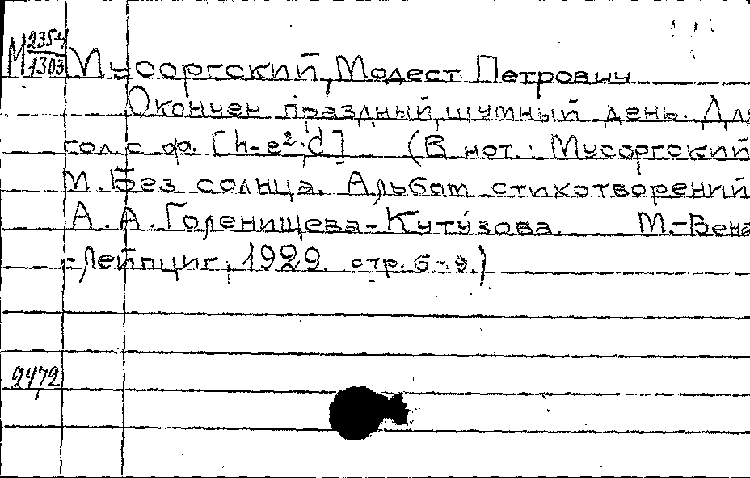 М 2354/1303 Мусоргский, Модест Петрович
Окончен праздный, шумный день. Для
гол. с ф. [h-e²; d] (В нот.: Мусоргский
М. Без солнца. Альбом стихотворений
А. А. Голенищева-Кутузова. М.-Вена
-Лейпциг, 1929. стр. 6-9.)
2472